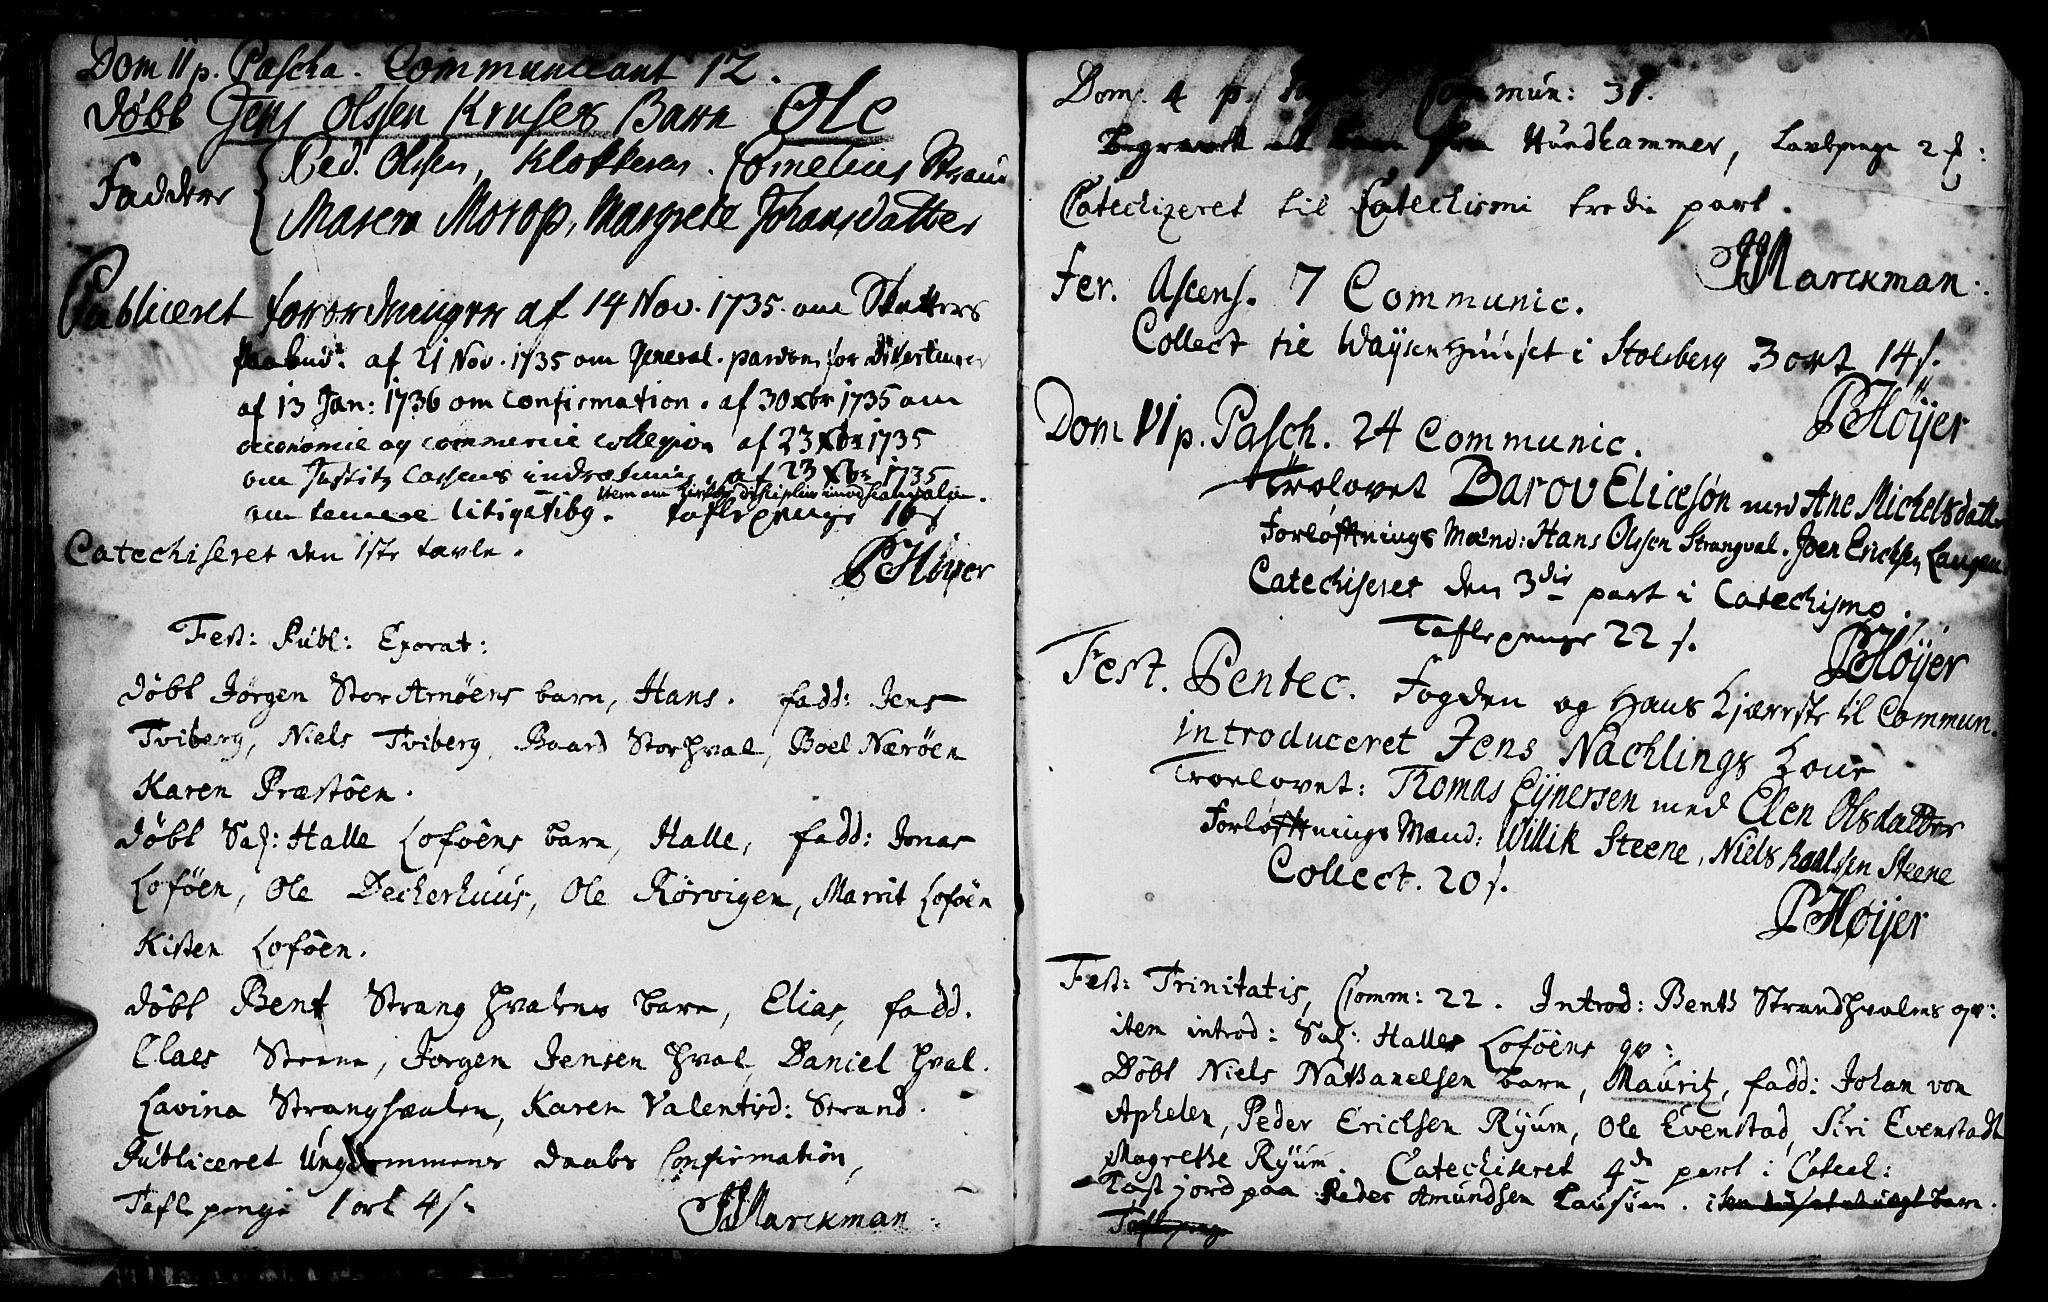 Dom II p. Pascha. Communicant 12.
døbt Jens Olssen Kruses Barn Ole
Faddere
Ped. Olssen, Klokkeren. Cornelius
Maren Morop, Margrete Johansdatter
Publiceret forordninger af 14 Nov. 1735. om Skatters
paabud. af 21 Nov. 1735 om General-pardon for
af 13 Jan: 1736 om confirmation. af 30 xbr 1735 om
oeconomie og commercie collegion af 23 xbr 1735
om Justitz Cassens af 23 xbr 1735
item om Kirkes disciplin imod scandala.
om temere litigatibg. taflepenge 16 s
Catechiseret den 1ste tavle.
PHøijer
Fest: Publ: Exorat:
døbt Jørgen Stor Arnøens barn, Hans. fadd: Jens
Tviberg, Niels Tviberg, Baard Storhval, Boel Nærøen
Karen Præstøen.
døbt Sal: Halle Loføens barn, Halle, fadd: Jonas
Loføen, Ole Deckerhuus, Ole Rørvigen, Marrit Loføen
Kisten Loføen.
døbt Bent Strang hvalens barn, Elias, fadd.
Claes Steene, Jørgen Jensen Hval, Daniel hval.
Lavina Stranghvalen, Karen Valentisd: Strand.
Publiceret Ungdommens daabs Confirmation,
Tafle penge 1 ort 4 s.
JMarckman
Dom. 4 p. Commun: 31.
Begravet et barn fra Hundhammer, 2 s:
Catechizeret til Catechismi tredie part.
JMarckman.
Fer. Ascens. 7 Communic.
Collect til Waysenhuuset i Stolberg 3 ort 14 s.
PHøijer
Dom VI p. Pasch. 24 Communic.
Trolovet Barov Elicesøn med Ane Michelsdatter
Forløftnings Mænd: Hans Olssen Stranghval. Joen Erichsen Langøen.
Catechiseret den 3die part i Catechismo.
Taflepenge 22 s.
PHøijer
Fest. Pentec. Fogden og Hans Kjæreste til Commun.
introduceret Jens Nachlings Kone
Troelovet: Thomas Eijnersen med Elen Olsdatter
Forløftnings Mænd: Willik Steene, Niels Steene
Collect. 20 s.
PHøijer
Fest: Trinitatis, Comm: 22. Introd: Benth Strandhvalms qv:
item introd: Sal: Halles Loføens qv:
Døbt Niels Nathanelsen barn, Mauritz, fadd: Johan von
Aphelen, Peder Erichsen Ryum, Ole Evenstad, Siri Evenstadt
Magrethe Ryum. Catechiseret 4de part i Catech:
Kast jord paa Peder Amundsen Lausøen. barn.
Taflepenge